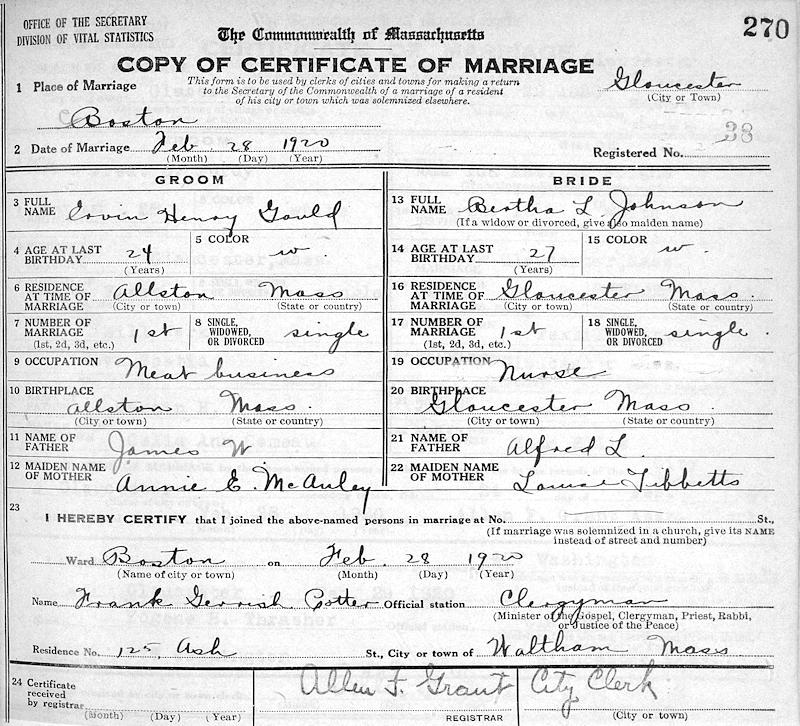 OFFICE OF THE SECRETARY
DIVISION OF VITAL STATISTICS
The Commonwealth of Massachusetts
270
COPY OF CERTIFICATE OF MARRIAGE
This form is to be used by clerks of cities and towns for making a return
to the Secretary of the Commonwealth of a marriage of a resident
of his city or town which was solemnized elsewhere.
Gloucester
(City or Town)
1 Place of Marriage
Boston
2 Date of Marriage Feb 28 1920
(Month) (Day) (Year)
Registered No. 38
GROOM
3 FULL NAME Ervin Henry Gould
4 AGE AT LAST BIRTHDAY 24 (Years)
5 COLOR w
6 RESIDENCE AT TIME OF MARRIAGE Allston Mass
(City or town) (State or country)
7 NUMBER OF MARRIAGE 1st
(1st, 2d, 3d, etc.)
8 SINGLE, WIDOWED, OR DIVORCED single
9 OCCUPATION Meat business
10 BIRTHPLACE Allston Mass.
(City or town) (State or country)
11 NAME OF FATHER James W
12 MAIDEN NAME OF MOTHER Annie E. McAuley
BRIDE
13 FULL NAME Bertha L. Johnson
(If a widow or divorced, give also maiden name)
14 AGE AT LAST BIRTHDAY 27 (Years)
15 COLOR w.
16 RESIDENCE AT TIME OF MARRIAGE Gloucester Mass.
(City or town) (State or country)
17 NUMBER OF MARRIAGE 1st
(1st, 2d, 3d, etc.)
18 SINGLE, WIDOWED, OR DIVORCED single.
19 OCCUPATION Nurse
20 BIRTHPLACE Gloucester Mass.
(City or town) (State or country)
21 NAME OF FATHER Alfred L.
22 MAIDEN NAME OF MOTHER Louise Tibbetts
23
I HEREBY CERTIFY that I joined the above-named persons in marriage at No. St.,
(If marriage was solemnized in a church, give its NAME
instead of street and number)
Ward Boston on Feb. 28 1920
(Name of city or town) (Month) (Day) (Year)
Name Frank Gerrish Potter Official station Clergyman
(Minister of the Gospel, Clergyman, Priest, Rabbi,
or Justice of the Peace)
Residence No. 125, Ash St., City or town of Waltham Mass
24 Certificate
received
by registrar
(Month) (Day) (Year)
Allen F. Grant
REGISTRAR
City Clerk
(City or town)